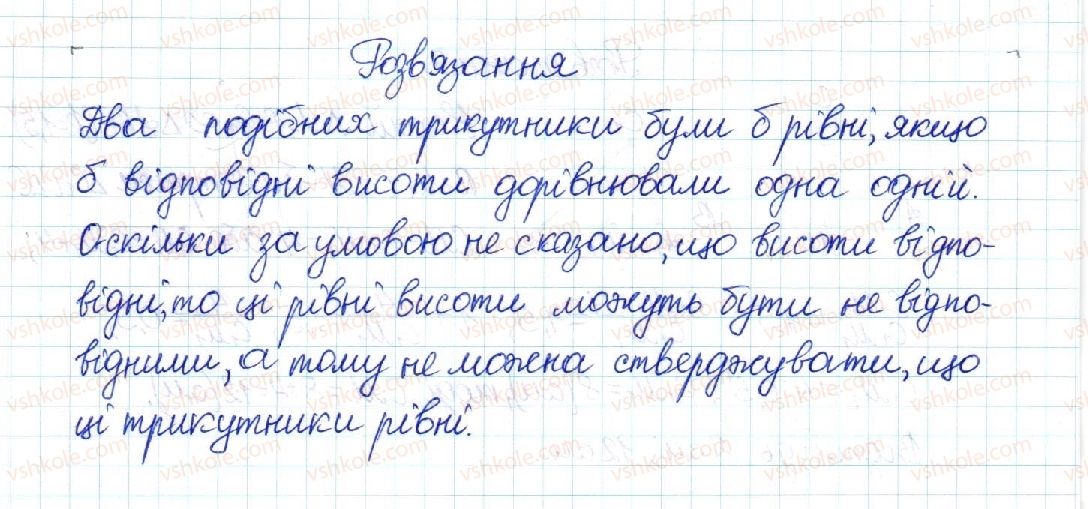 Розв'язання
Два подібних трикутники були б рівні, якщо
б відповідні висоти дорівнювали одна одній.
Оскільки за умовою не сказано, що висоти відпо-
відні, то ці рівні висоти можуть бути не відпо-
відними, а тому не можна стверджувати, що
ці трикутники рівні.